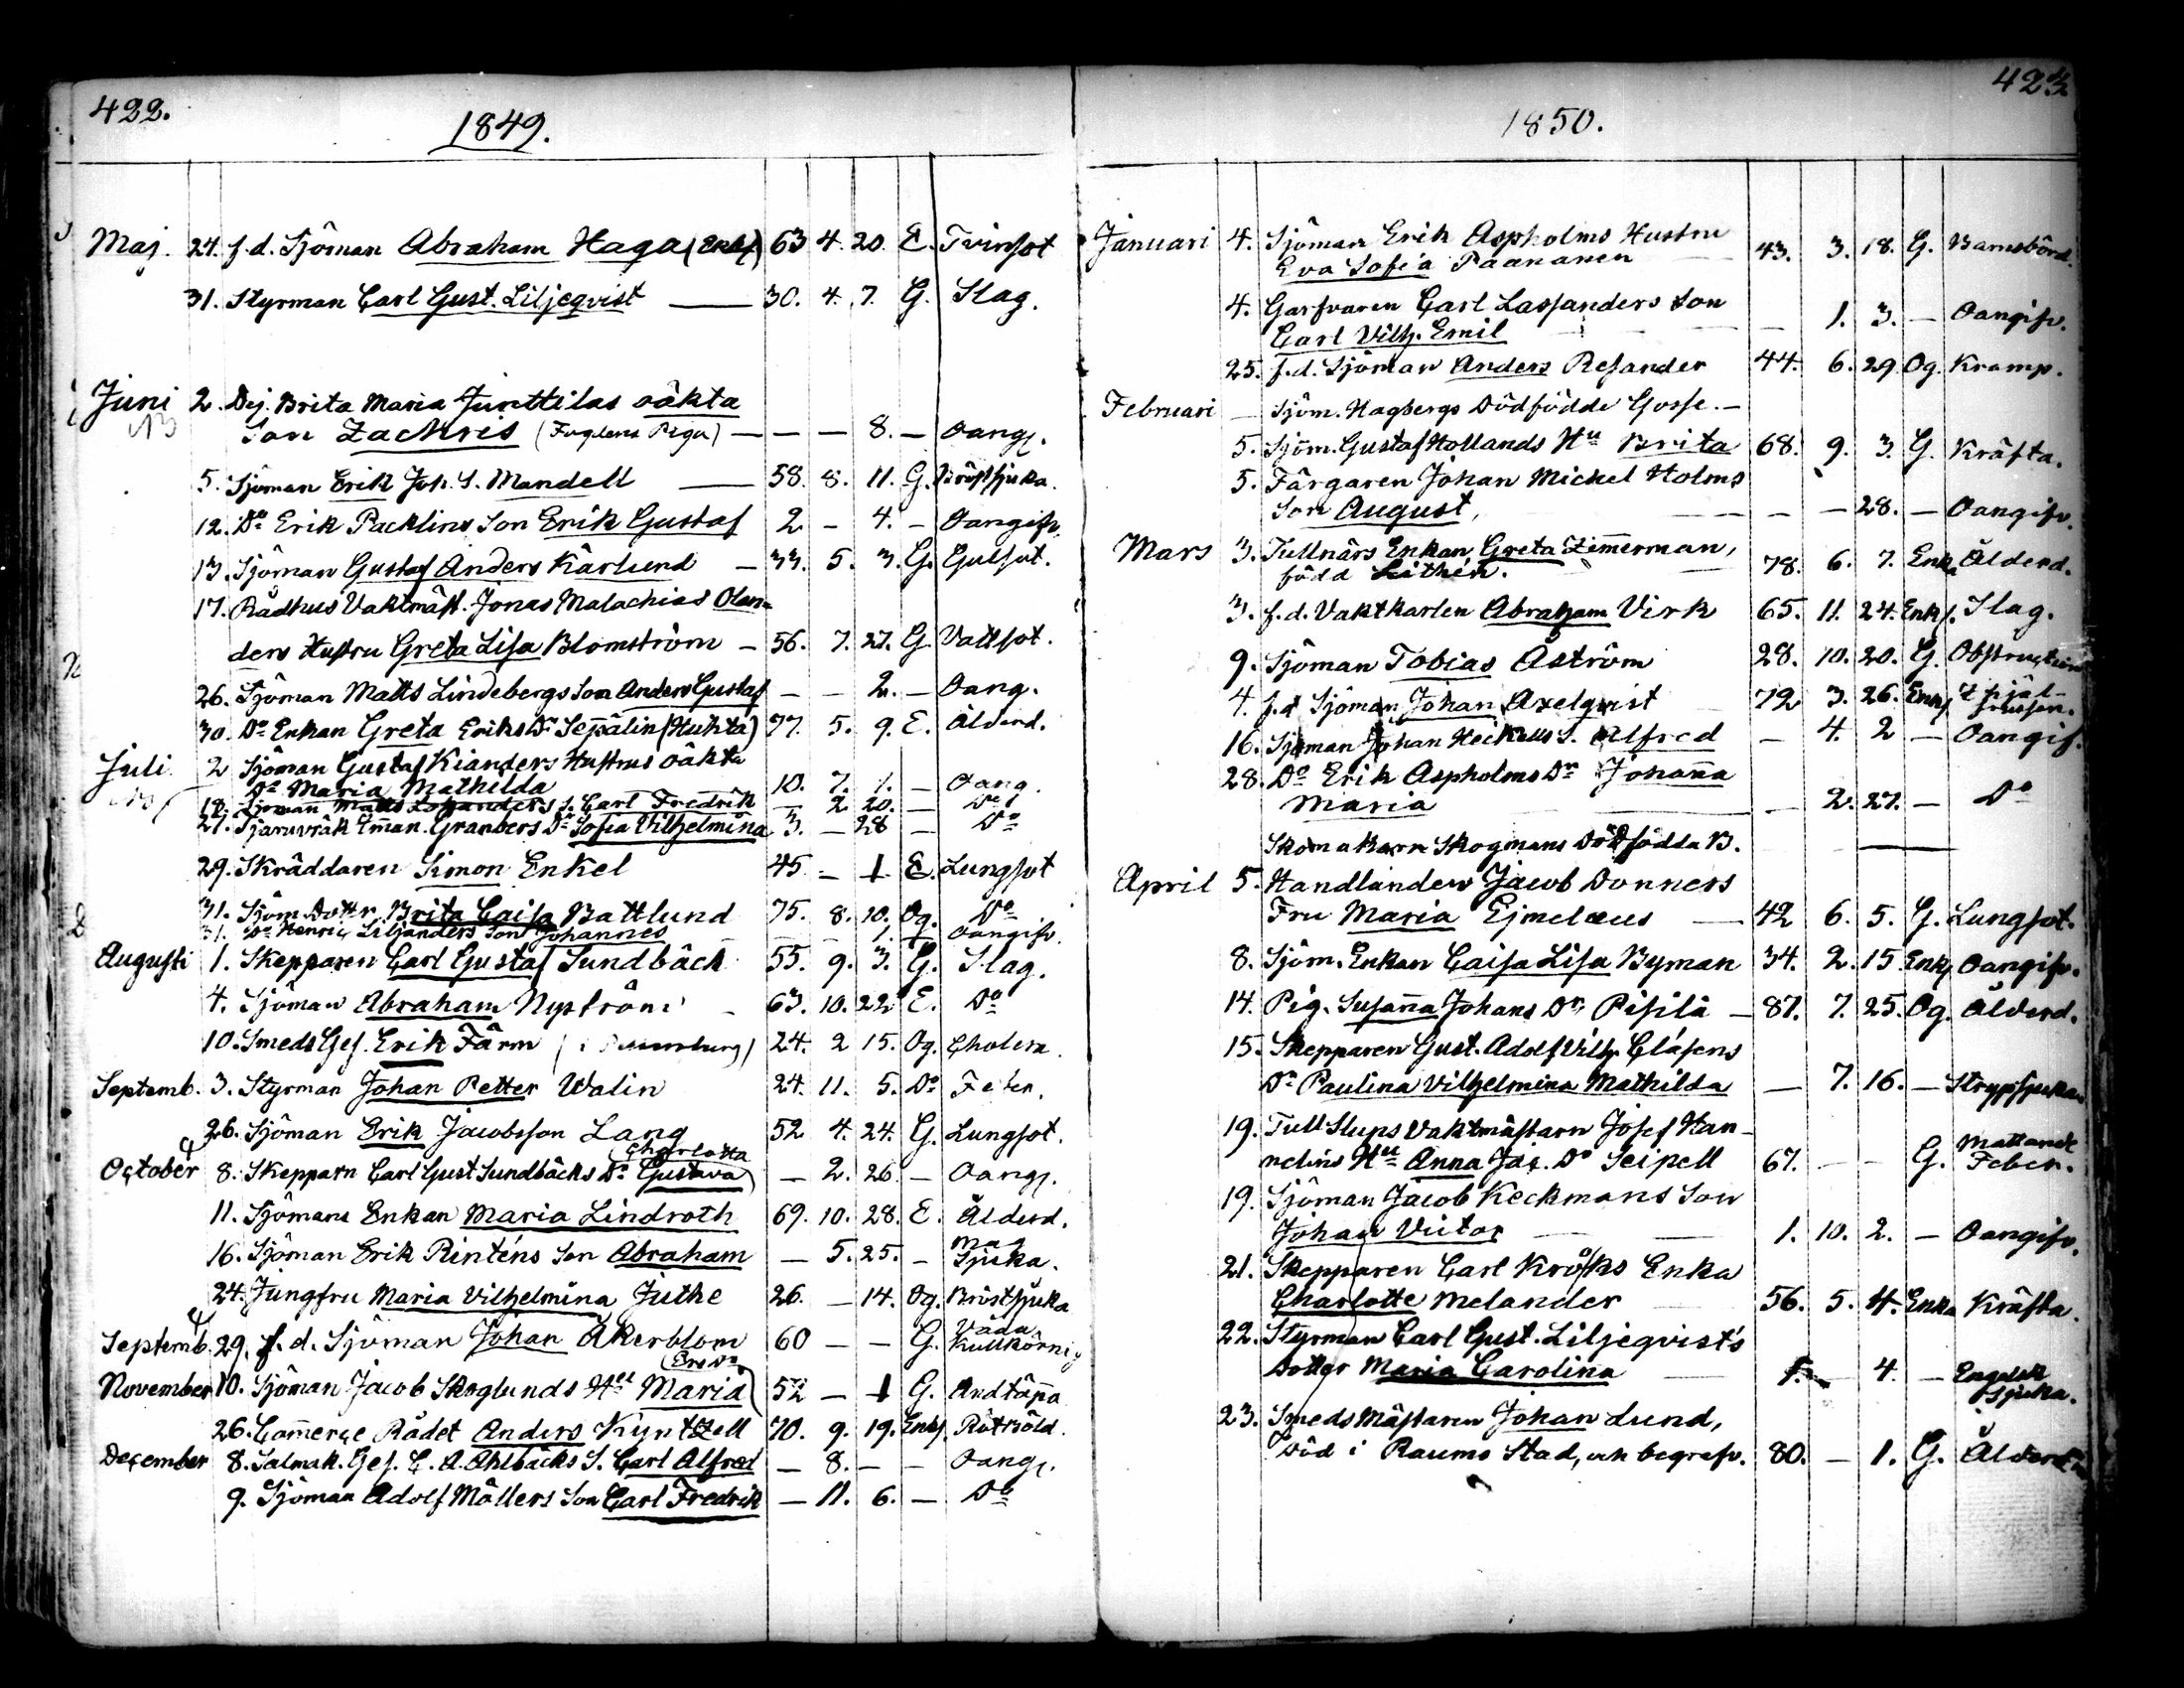 422.
1849.
Maj. 24. f.d. Sjöman Abraham Haga (Enkl) 63 4. 20. E. Tvinsot
31. Styrman Carl Gust. Liljeqvist — 30. 4. 7. G. Slag.
Juni 2. Pig. Brita Maria Junttilas oäkta
Son Zachris — — — 8. — Oang.
5. Sjöman Erik Joh. S. Mandell — 58. 8. 11. G. Bröstsjuka.
12. Do Erik Packlins Son Erik Gustaf 2 — 4. — Oangifv.
13. Sjöman Gustaf Anders Kärlund — 33. 5. 3. G. Gulsot.
17. Rådhus Vaktmäst. Jonas Malachias Olan=
ders Hustru Greta Lisa Blomström — 56. 7. 27. G. Vattsot.
26. Sjöman Matts Lindebergs Son Anders Gustaf — — 2. — Oang.
30. Do Enkan Greta Eriks Dr Sepälin (Huhta) 77. 5. 9. E. Ålderd.
Juli 2 Sjöman Gustaf Kianders Hustrus oäkta
Dr Maria Mathilda 10. 7. 1. — Oang.
18. Sjöman Matts S. Carl Fredrik — 2 20. — Do
27. Granbers Dr Sofia Vilhelmina 3. — 28 — Do
29. Skräddaren Simon Enkel 45 — 1 E. Lungsot
31. Sjöm. Dotter Brita Caisa Battlund 75. 8. 10. Og. Do
31. Do Henric Liljanders Son Johannes — — 1. — Oangifv.
Augusti 1. Skepparen Carl Gustaf Sundbäck 55. 9. 3. G. Slag.
4. Sjöman Abraham Nyström — 63. 10. 22 E. Do
10. Smeds Ges. Erik Färm 24. 2 15. Og. Cholera.
Septemb. 3. Styrman Johan Petter Walin 24. 11. 5. Do Feber.
26. Sjöman Erik Jacobsson Lang 52 4. 24. G. Lungsot.
Charlotta
October 8. Skepparn Carl Gust Sundbäcks Dr Gustava — 2. 26. — Oang.
11. Sjömans Enkan Maria Lindroth 69. 10. 28. E. Ålderd.
16. Sjöman Erik Rinténs Son Abraham — 5. 25. — Mag Sjuka.
24. Jungfru Maria Vilhelmina Juthe 26. — 14. Og. Bröstsjuka
Septemb. 29. f.d. Sjöman Johan Åkerblom 60 — — G. Våda Kullkörning
November 10. Sjöman Jacob Skoglunds Hu Maria 52 — 1 G. Andtäppa
26. Commerce Rådet Anders Kyntzell 70. 9. 19. Enkl. Rötböld.
December 8. Salmak. Ges. C. A. Ahlbäcks S. Carl Alfred — 8. — — Oang.
9. Sjöman Adolf Möllers Son Carl Fredrik — 11. 6. — Do
423
1850.
Januari 4. Sjöman Erik Aspholms Hustru
Eva Sofia Paananen — 43. 3. 18. G. Barnsbörd.
4. Garfvaren Carl Lassanders Son
Carl Vilh. Emil — — 1. 3. — Oangifv.
25. f.d. Sjöman Anders Resander 44. 6. 29 Og. Kramp.
Februari — Sjöm. Hagbergs Dödfödde Gosse. —
5. Sjöm. Gustaf Hollands Hu Brita 68. 9. 3. G. Kräfta.
5. Färgaren Johan Michel Holms
Son August, — — — 28. — Oangifv.
Mars 3. Tullnärs Enkan Greta Zimmerman,
född Lithén. — 78. 6. 7. Enka Ålderd.
3. f.d. Vaktkarlen Abraham Virk 65. 11. 24. Enkl. Slag.
9. Sjöman Tobias Åström 28. 10. 20. G. Obstruction
4. f.d Sjöman Johan Axelqvist 72 3. 26. Enkl
16. Sjöman Johan Heickells S. Alfred — 4. 2 — Oangif.
28. Do Erik Aspholms Dr Johanna
Maria — — 2. 27. — Do
Skomakarn Skogmans Dödfödda B.
April 5. Handlanden Jacob Donners
Fru Maria Ejmelæus — 42 6. 5. G. Lungsot.
8. Sjöm. Enkan Caisa Lisa Byman 34. 2. 15. Enk Oangifv.
14. Pig. Susanna Johans Dr Pisilä — 87. 7. 25. Og. Ålderd.
15. Skepparen Gust. Adolf Vilh. Clásens
Dr Paulina Vilhelmina Mathilda — 7. 16. — Strypsjukan
19. Tull Slups Vaktmästarn Josef Han-
nelins Hu Anna Jac. Dr Seipell 67. — — G. Mattande Feber.
19. Sjöman Jacob Keckmans Son
Johan Victor — 1. 10. 2. — Oangifv.
21. Skepparen Carl Kroks Enka
Charlotte Melander — 56. 5. 4. Enka Kräfta.
22. Styrman Carl Gust. Liljeqvist's
Dotter Maria Carolina — 1. — 4. — Engelsk Sjuka.
23. Smeds Mästaren Johan Lund,
Död i Raumo Stad, och begrafv. 80. — 1. G. Ålderd